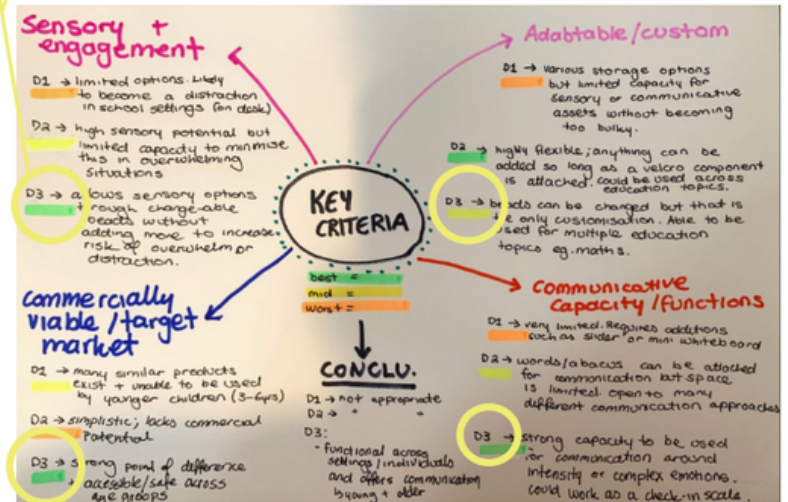 Sensory +
engagement
D1 → limited options. Likely
to become a distraction
in school settings (on desk)
D2 → high sensory potential but
limited capacity to minimise
this in overwhelming
situations
D3 → allows sensory options
through change-able
beads without
adding more to increase
risk of overwhelm or
distraction.
Adabtable/custom
D1 → various storage options
but limited capacity for
sensory or communicative
assets without becoming
too bulky.
D2 → highly flexible; anything can be
added so long as a velcro component
is attached. could be used across
education topics.
D3 → beads can be changed but that is
the only customisation. Able to be
used for multiple education
topics eg. maths.
KEY
CRITERIA
best =
mid =
worst =
CONCLU.
D1 → not appropriate
D2 → " "
D3:
- functional across
settings/individuals
and offers communication
by young + older
commercially
viable/target
market
D1 → many similar products
exist + unable to be used
by younger children (3-6yrs)
D2 → simplistic; lacks commercial
potential
D3 → strong point of difference
+ accesible/safe across
age groups
Communicative
Capacity/functions
D1 → very limited. Requires additions
such as slider or mini whiteboard
D2 → words/abacus can be attached
for communication but space
is limited. open to many
different communication approaches
D3 → strong capacity to be used
for communication around
intensity or complex emotions.
could work as a check-in scale.